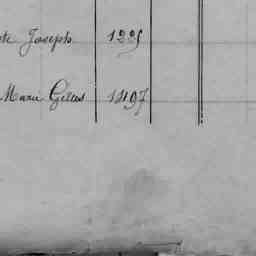 te Joseph 1225
Marie Gilles 1497